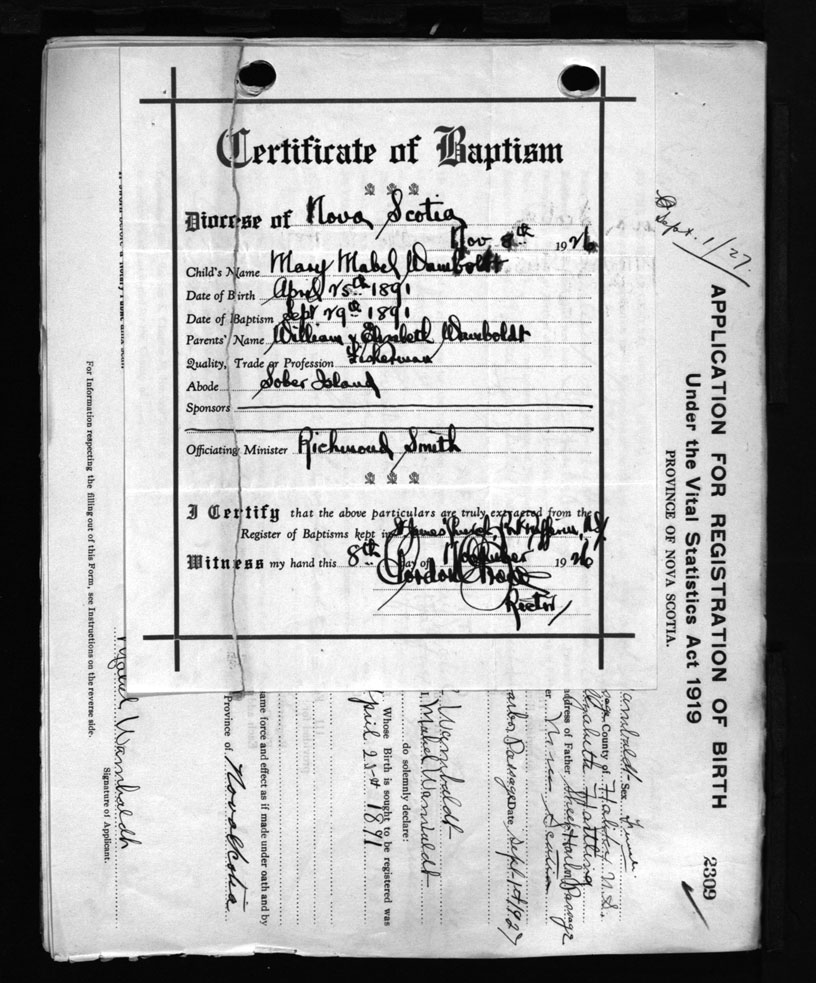 Certificate of Baptism
Diocese of Nova Scotia
Nov. 8th 1926
Child's Name Mary Mabel Wamboldt
Date of Birth April 25th 1891
Date of Baptism Sept 29th 1891
Parents' Name William & Elizabeth Wamboldt
Quality, Trade or Profession Fisherman
Abode Sober Island
Sponsors
Officiating Minister Richmond Smith
I Certify that the above particulars are truly extracted from the
Register of Baptisms kept in St James Church,
Witness my hand this 8th day of November 1926
Gordon
Rector
Sept. 1/27.
APPLICATION FOR REGISTRATION OF BIRTH
Under the Vital Statistics Act 1919
PROVINCE OF NOVA SCOTIA.
2309
Wamboldt Sex
County of Halifax N.S.
Elizabeth Hartling
address of Father Sheet Harbor Passage
Nova Scotia
arbor Passage Date Sept 1st 1927
Wamboldt
Mabel Wamboldt
do solemnly declare:
Whose Birth is sought to be registered was
April 25th 1891
ame force and effect as if made under oath and by
Province of Nova Scotia
Mabel Wamboldt
Signature of Applicant.
For Information respecting the filling out of this Form, see Instructions on the reverse side.